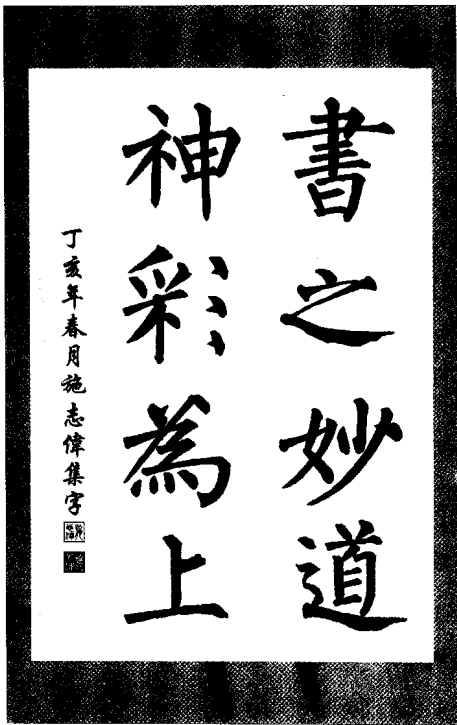 書之妙道
神彩為上
丁亥年春月施志偉集字